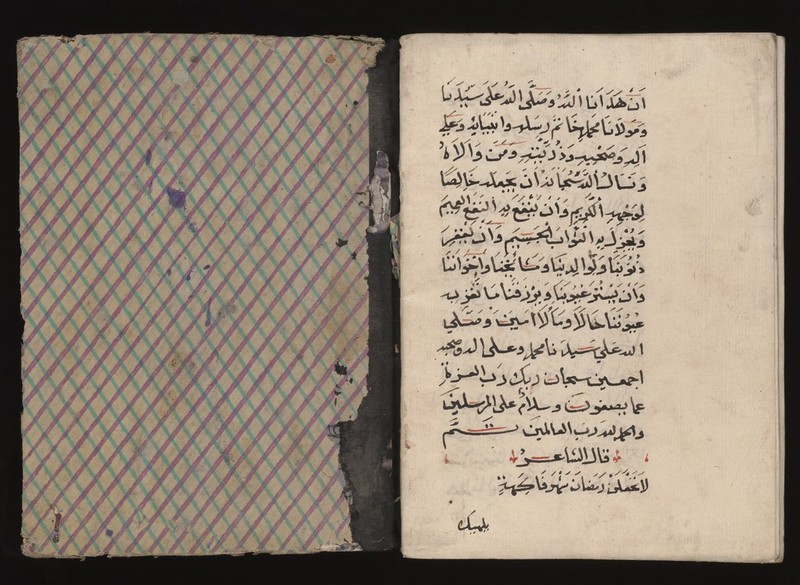 أن هدانا الله وصلى الله على سيدنا
ومولانا محمد خاتم رسله وانبيائه وعلى
اله وصحبه وذريته ومن والاه
ونسال الله سبحانه أن يجعله خالصا
لوجهه الكريم وأن ينفع به النفع العميم
ويجزل به الثواب الجسيم وأن يغفر
ذنوبنا ولوالدينا ومشائخنا وإخواننا
وأن يستر عيوبنا ويرزقنا ما تقر به
عيوننا حالا ومالا امين وصلى
الله على سيدنا محمد وعلى اله وصحبه
اجمعين سبحان ربك رب العزة
عما يصفون وسلام على المرسلين
والحمد لله رب العالمين تم
قال الشاعر
لا تجعلن رمضان شهر فاكهة
يلهيك